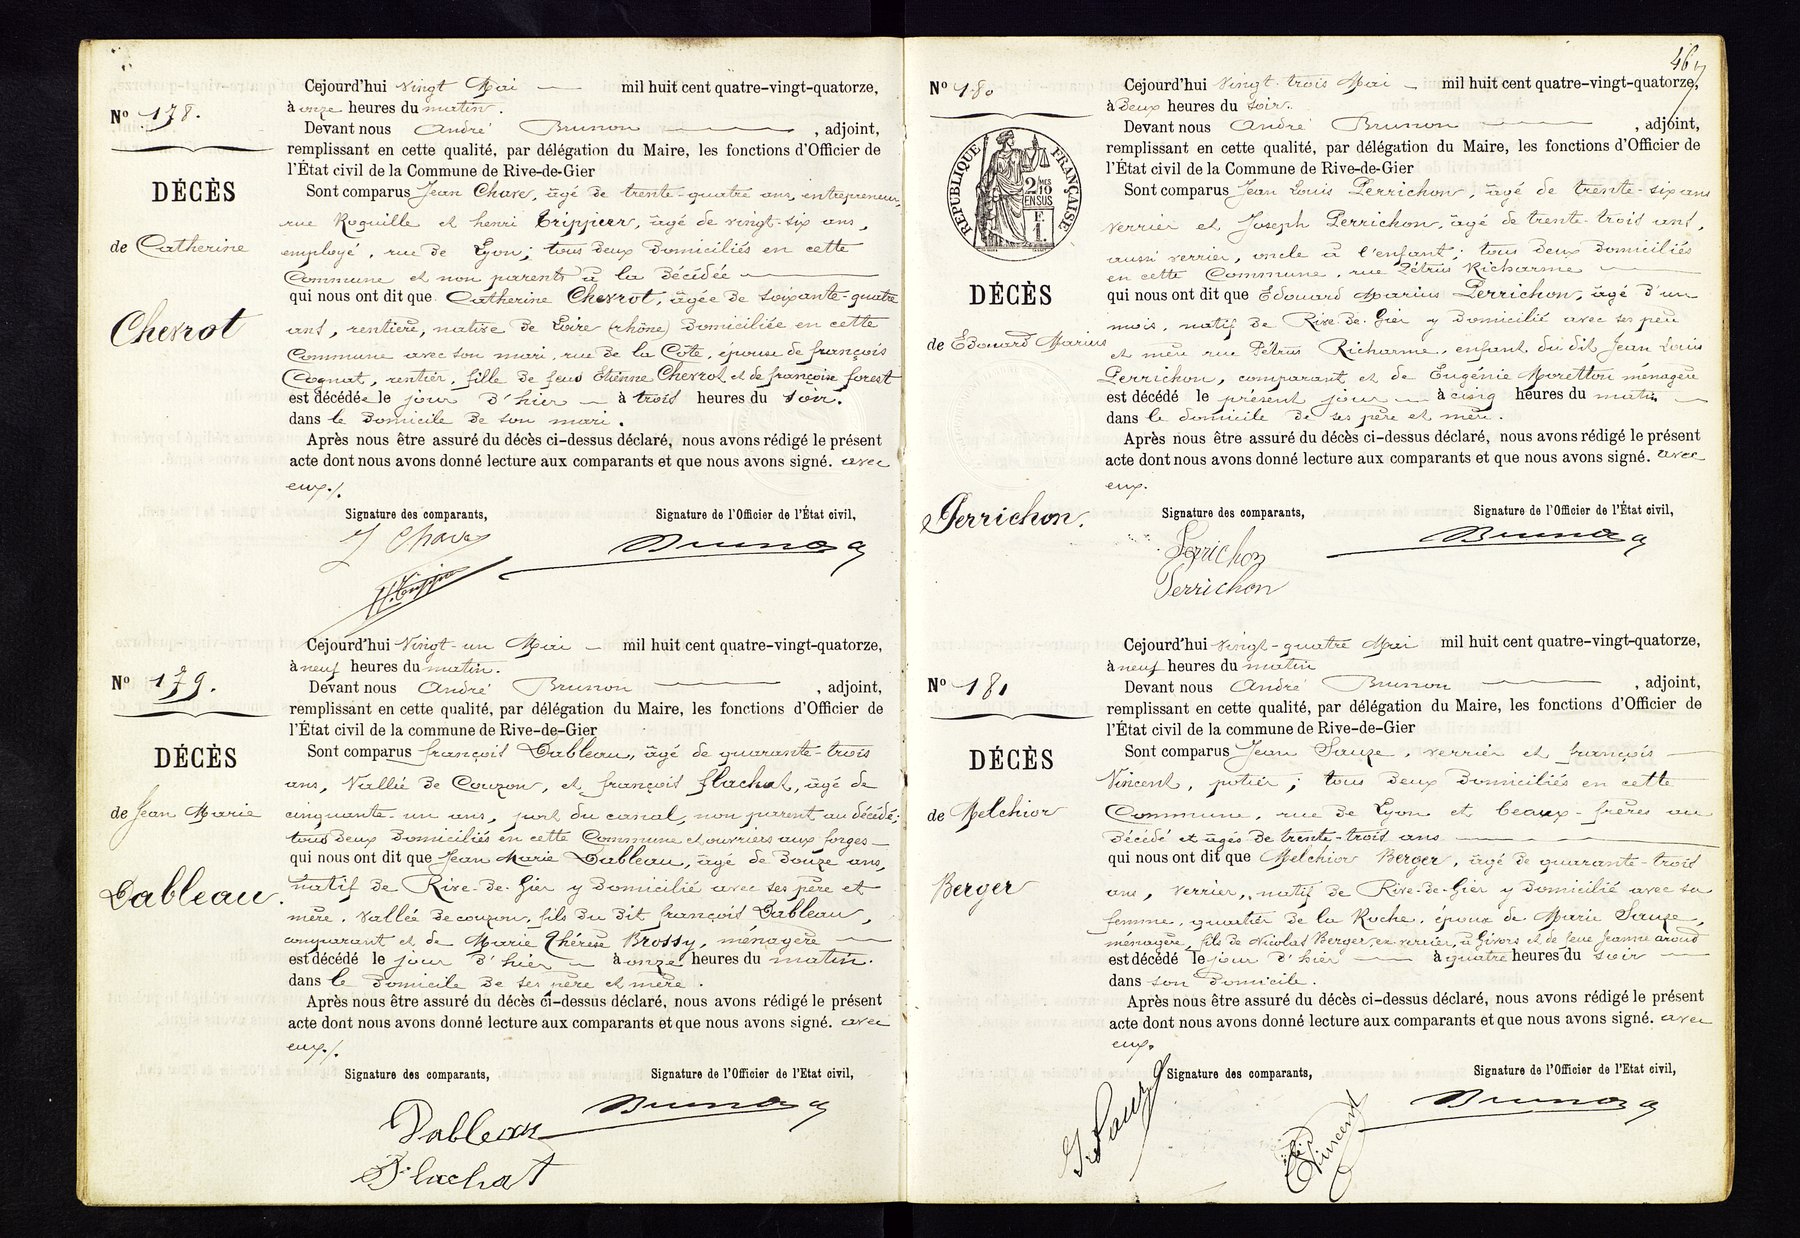 Nº 178.
DÉCÈS
de Catherine
Chevrot
Cejourd'hui vingt Mai — mil huit cent quatre-vingt-quatorze,
à onze heures du matin.
Devant nous André Brunon — , adjoint,
remplissant en cette qualité, par délégation du Maire, les fonctions d'Officier de
l'État civil de la Commune de Rive-de-Gier
Sont comparus Jean Chave, âgé de trente-quatre ans, entrepreneur,
rue Roquille et henri Crippier, âgé de vingt-six ans,
employé, rue de Lyon; tous deux domiciliés en cette
Commune et non parents à la décédée —
qui nous ont dit que Catherine Chevrot, âgée de soixante-quatre
ans, rentière, native de Loire (rhône) domiciliée en cette
Commune avec son mari, rue de la Côte, épouse de françois
Cognat, rentier, fille de feus Etienne Chevrot et de françoise forest
est décédée le jour d'hier — à trois heures du soir.
dans le domicile de son mari.
Après nous être assuré du décès ci-dessus déclaré, nous avons rédigé le présent
acte dont nous avons donné lecture aux comparants et que nous avons signé. avec
eux./.
Signature des comparants, Signature de l'Officier de l'État civil,
J Chave Brunon
Nº 179.
DÉCÈS
de Jean Marie
Dableau.
Cejourd'hui Vingt-un Mai — mil huit cent quatre-vingt-quatorze,
à neuf heures du matin.
Devant nous André Brunon — , adjoint,
remplissant en cette qualité, par délégation du Maire, les fonctions d'Officier de
l'État civil de la commune de Rive-de-Gier
Sont comparus françois Dableau, âgé de quarante-trois
ans, Vallée de Couzon, et françois flachat, âgé de
cinquante-un ans, port du canal, non parent au décédé;
tous deux domiciliés en cette Commune et ouvriers aux forges —
qui nous ont dit que Jean Marie Dableau, âgé de douze ans,
natif de Rive-de-Gier y domicilié avec ses père et
mère, Vallée de couzon, fils du dit françois Dableau,
comparant et de Marie Thérèse Brossy, ménagère —
est décédé le jour d'hier — à onze heures du matin.
dans le domicile de ses père et mère.
Après nous être assuré du décès ci-dessus déclaré, nous avons rédigé le présent
acte dont nous avons donné lecture aux comparants et que nous avons signé. avec
eux./.
Signature des comparants, Signature de l'Officier de l'Etat civil,
Dableau Brunon
Flachat
Nº 180
RÉPUBLIQUE FRANÇAISE
2 10MES EN SUS
F. 1.
DÉCÈS
de Edouard Marius
Perrichon.
Cejourd'hui Vingt-trois Mai — mil huit cent quatre-vingt-quatorze,
à deux heures du soir.
Devant nous André Brunon — , adjoint,
remplissant en cette qualité, par délégation du Maire, les fonctions d'Officier de
l'État civil de la Commune de Rive-de-Gier
Sont comparus Jean Louis Perrichon, âgé de trente-six ans
verrier et Joseph Perrichon, âgé de trente-trois ans,
aussi verrier, oncle à l'enfant; tous deux domiciliés
en cette Commune, rue Pétrus Richarme —
qui nous ont dit que Edouard Marius Perrichon, âgé d'un
mois, natif de Rive-de-Gier y domicilié avec ses père
et mère rue Pétrus Richarme, enfant du dit Jean Louis
Perrichon, comparant et de Eugénie Moretton ménagère
est décédé le présent jour — à cinq heures du matin —
dans le domicile de ses père et mère.
Après nous être assuré du décès ci-dessus déclaré, nous avons rédigé le présent
acte dont nous avons donné lecture aux comparants et que nous avons signé. avec
eux.
Signature des comparants, Signature de l'Officier de l'État civil,
Perrichon Brunon
Perrichon
Nº 181
DÉCÈS
de Melchior
Berger
Cejourd'hui vingt-quatre Mai mil huit cent quatre-vingt-quatorze,
à neuf heures du matin
Devant nous André Brunon — , adjoint,
remplissant en cette qualité, par délégation du Maire, les fonctions d'Officier de
l'État civil de la commune de Rive-de-Gier
Sont comparus Jean Sauze, verrier et françois —
Vincent, potier; tous deux domiciliés en cette
Commune, rue de Lyon et beaux-frères au
décédé et âgés de trente-trois ans —
qui nous ont dit que Melchior Berger, âgé de quarante-trois
ans, verrier, natif de Rive-de-Gier y domicilié avec sa
femme, quartier de la Roche, époux de Marie Sauze,
ménagère, fils de Nicolas Berger ex verrier, à Givors et de feue Jeanne aroud
est décédé le jour d'hier — à quatre heures du soir —
dans son domicile.
Après nous être assuré du décès ci-dessus déclaré, nous avons rédigé le présent
acte dont nous avons donné lecture aux comparants et que nous avons signé. avec
eux.
Signature des comparants, Signature de l'Officier de l'Etat civil,
Sauze Vincent Brunon